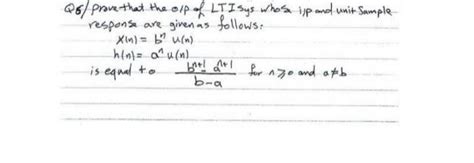 Q6/ prove that the o/p of LTI sys whose i/p and unit sample
response are given as follows:
x(n) = bⁿ u(n)
h(n) = aⁿ u(n)
is equal to bⁿ⁺¹ - aⁿ⁺¹ / b-a for n ≥ 0 and a≠b